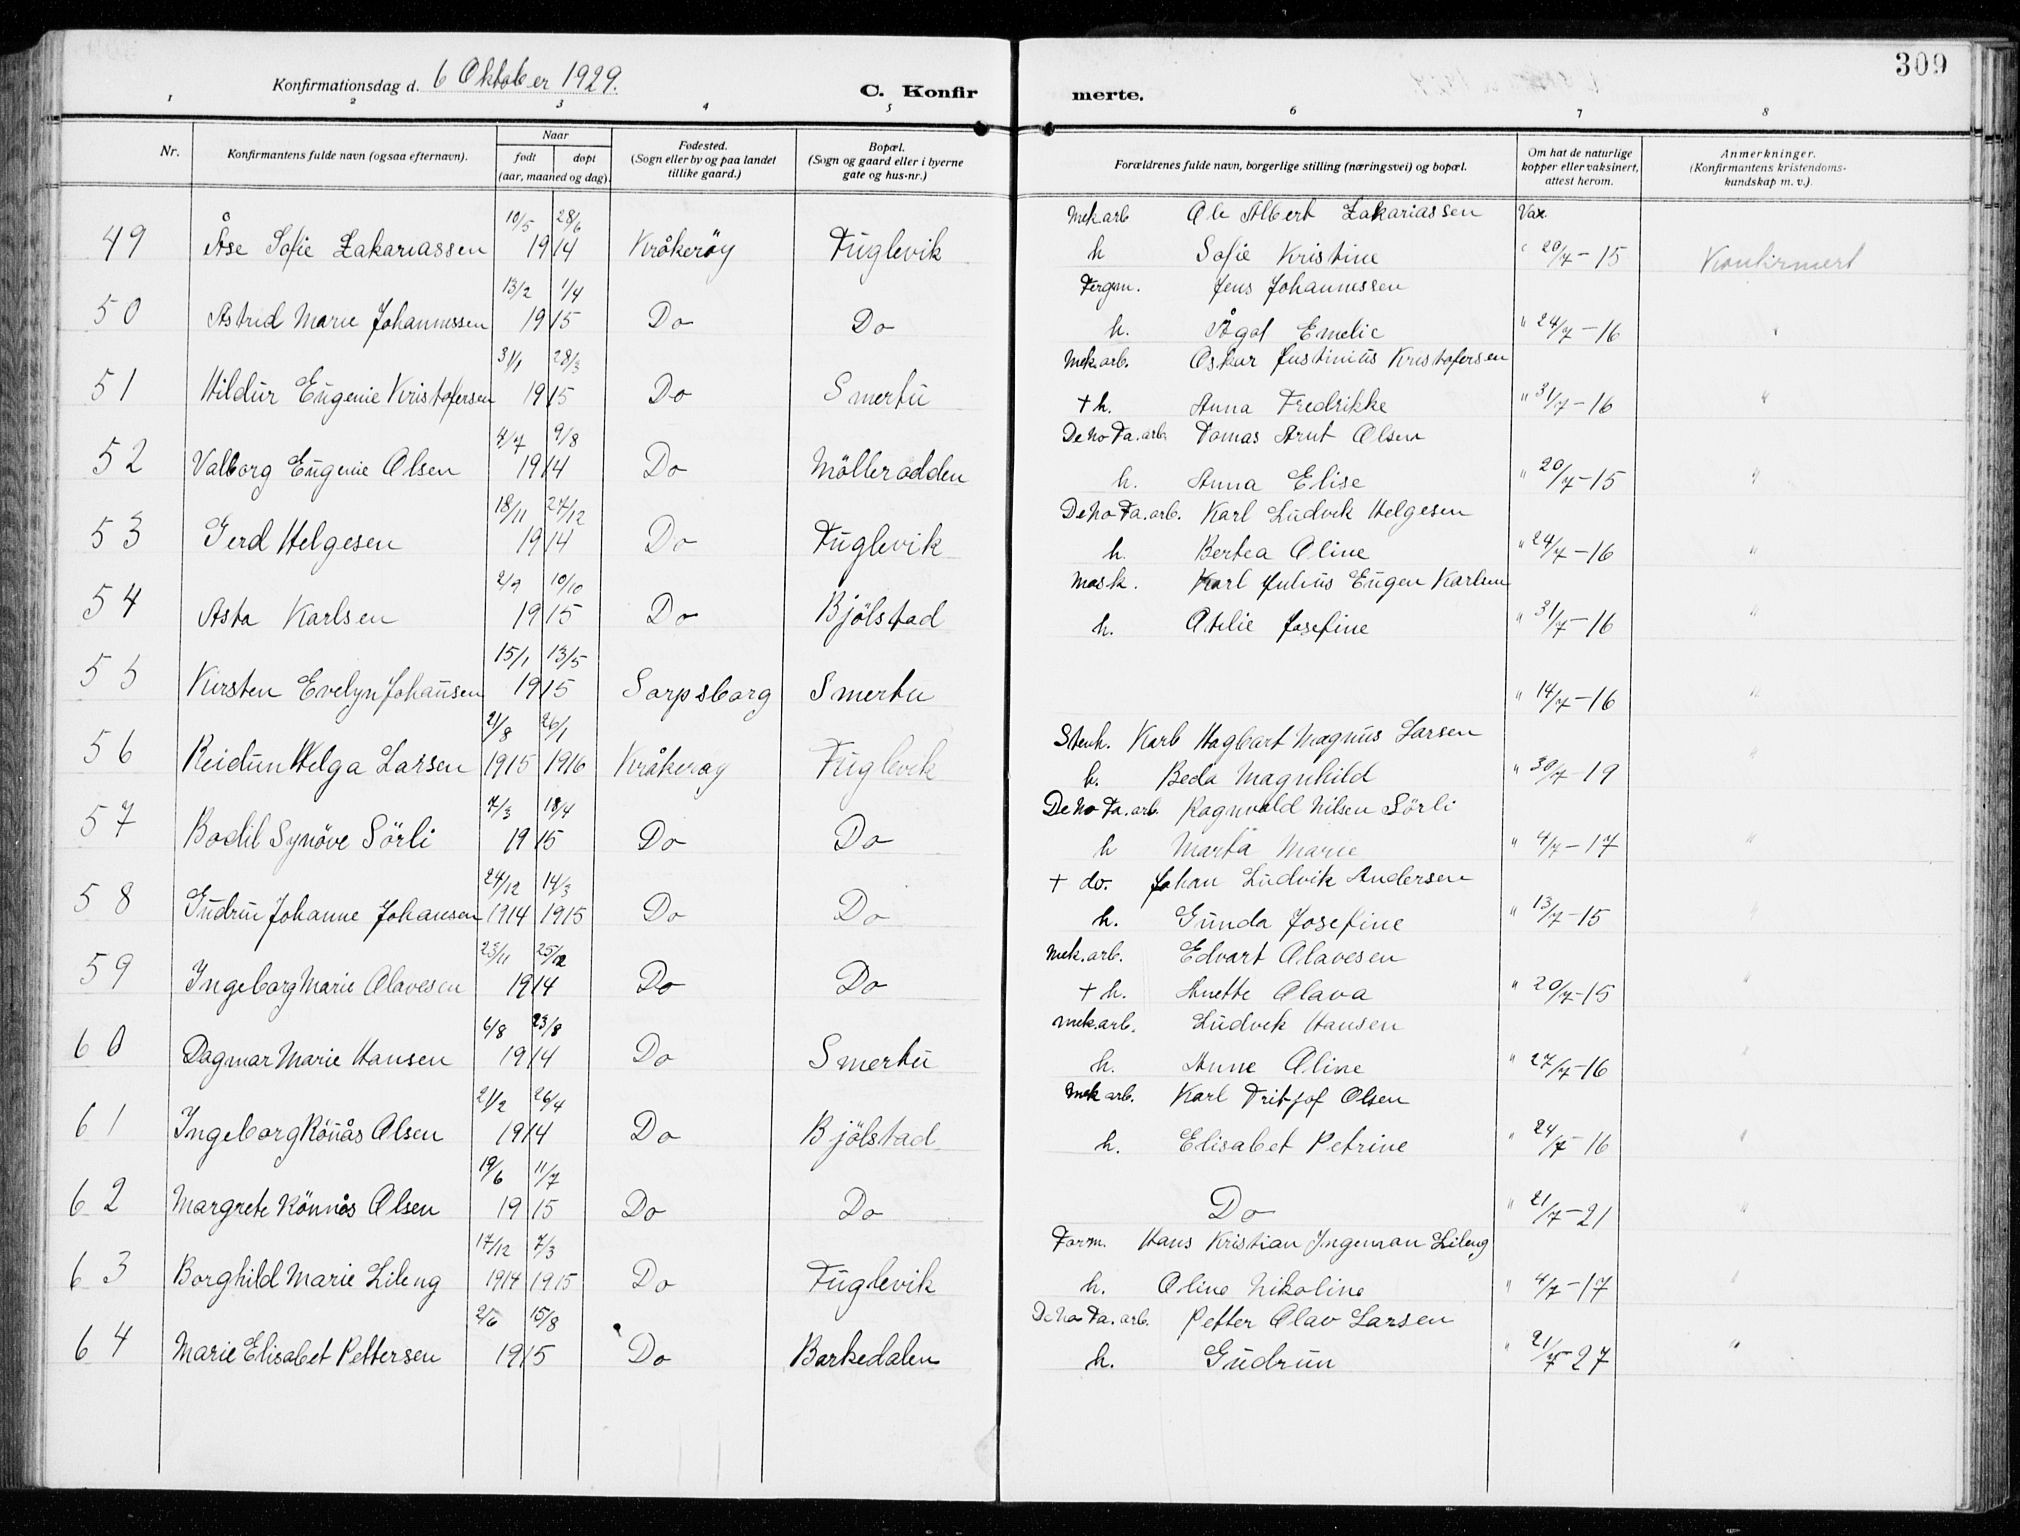 309
Konfirmationsdag d. 6 Oktober 1929.
C. Konfirmerte.
1 2 3 4 5 6 7 8
Nr. | Konfirmantens fulde navn (ogsaa efternavn). | Naar født døpt (aar, maaned og dag). | Fødested. (Sogn eller by og paa landet tillike gaard.) | Bopæl. (Sogn og gaard eller i byerne gate og hus-nr.) | Forældrenes fulde navn, borgerlige stilling (næringsvei) og bopæl. | Om hat de naturlige kopper eller vaksinert, attest herom. | Anmerkninger. (Konfirmantens kristendomskundskap m. v.).
10/5 28/6 Mek arb Ole Albert Zakariassen Vax.
49 Åse Sofie Zakariassen 1914 Kråkeröy Fuglevik h Sofie Kristine " 20/7-15 Konfirmert
13/2 1/4 Fergm. Jens Johannessen
50 Astrid Marie Johannessen 1915 Do Do h. Ågot Emelie " 24/7-16 "
31/1 28/3 Mek.arb. Oskar Justinius Kristofersen
51 Hildur Eugenie Kristofersen 1915 Do Smertu + h. Anna Fredrikke " 31/7-16 "
4/7 9/8 De No Fa. arb. Tomas Arnt Olsen
52 Valborg Eugenie Olsen 1914 Do Mölleradden h. Anna Elise " 20/7-15 "
18/11 27/12 De No Fa. arb. Karl Ludvik Helgesen
53 Gerd Helgesen 1914 Do Fuglevik h. Bertea Oline " 24/7-16 "
2/9 10/10 Mask. Karl Julius Eugen Karlsen
54 Asta Karlsen 1915 Do Bjölstad h. Otelie Josefine " 31/7-16 "
15/1 13/5
55 Kirsten Evelyn Johansen 1915 Sarpsborg Smertu " 14/7-16 "
21/8 26/1 Stenh. Karl Hagbart Magnus Larsen
56 Reidun Helga Larsen 1915 1916 Kråkeröy Fuglevik h. Beda Magnhild " 30/7-19 "
7/3 18/4 De No Fa. arb. Ragnvald Nilsen Sörli
57 Bodil Synöve Sörli 1915 Do Do h Marta Marie " 4/7-17 "
24/12 14/3 + do. Johan Ludvik Andersen
58 Gudrun Johanne Johansen 1914 1915 Do Do h. Gunda Josefine " 13/7-15 "
23/11 25/12 Mek.arb. Edvart Olavesen
59 Ingeborg Marie Olavesen 1914 Do Do + h. Anette Olava " 20/7-15 "
6/8 23/8 Mek.arb. Ludvik Hansen
60 Dagmar Marie Hansen 1914 Do Smertu h. Anne Oline " 27/7-16 "
21/2 26/4 Mek arb. Karl Fritjof Olsen
61 Ingeborg Rönås Olsen 1914 Do Bjölstad h. Elisabet Petrine " 24/7-16 "
19/6 11/7
62 Margrete Rönnås Olsen 1915 Do Do Do " 21/7-21 "
17/12 7/3 Form. Hans Kristian Ingeman Lileng
63 Borghild Marie Lileng 1914 1915 Do Fuglevik h. Oline Nikoline " 4/7-17 "
2/6 15/8 De No Fa. arb. Petter Olav Larsen
64 Marie Elisabet Pettersen 1915 Do Barkedalen h. Gudrun " 21/7-27 "